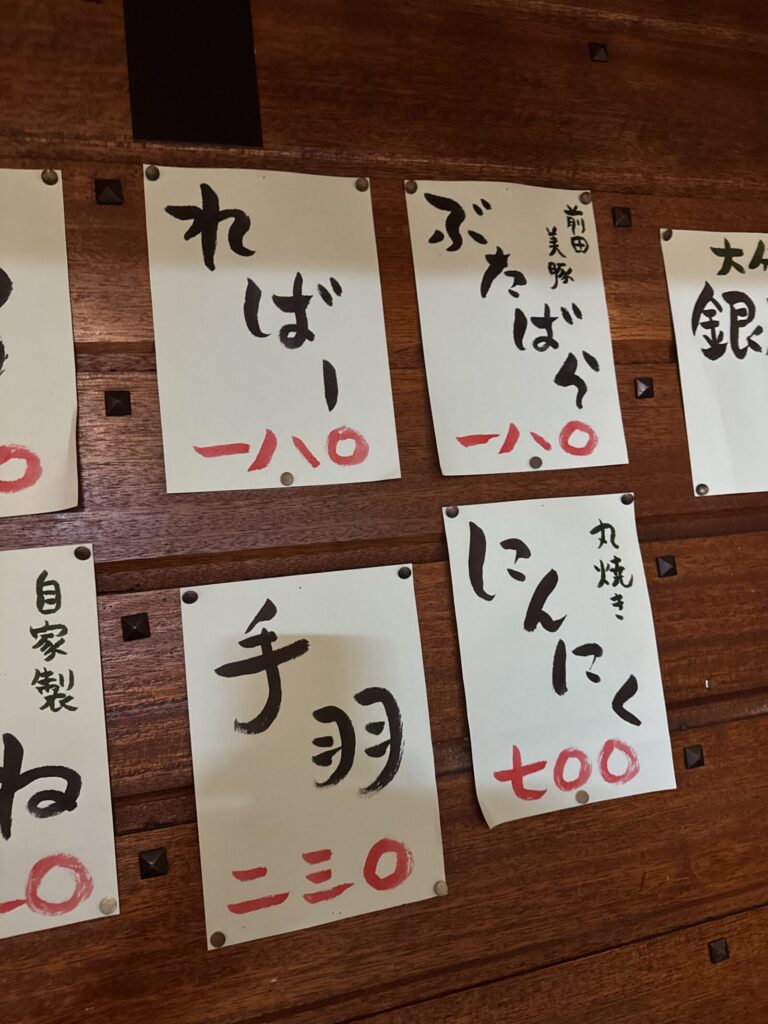 ればー
一八〇
前田
美豚
ぶたばら
一八〇
大
銀
〇
自家製
ね
〇
手羽
二三〇
丸焼き
にんにく
七〇〇